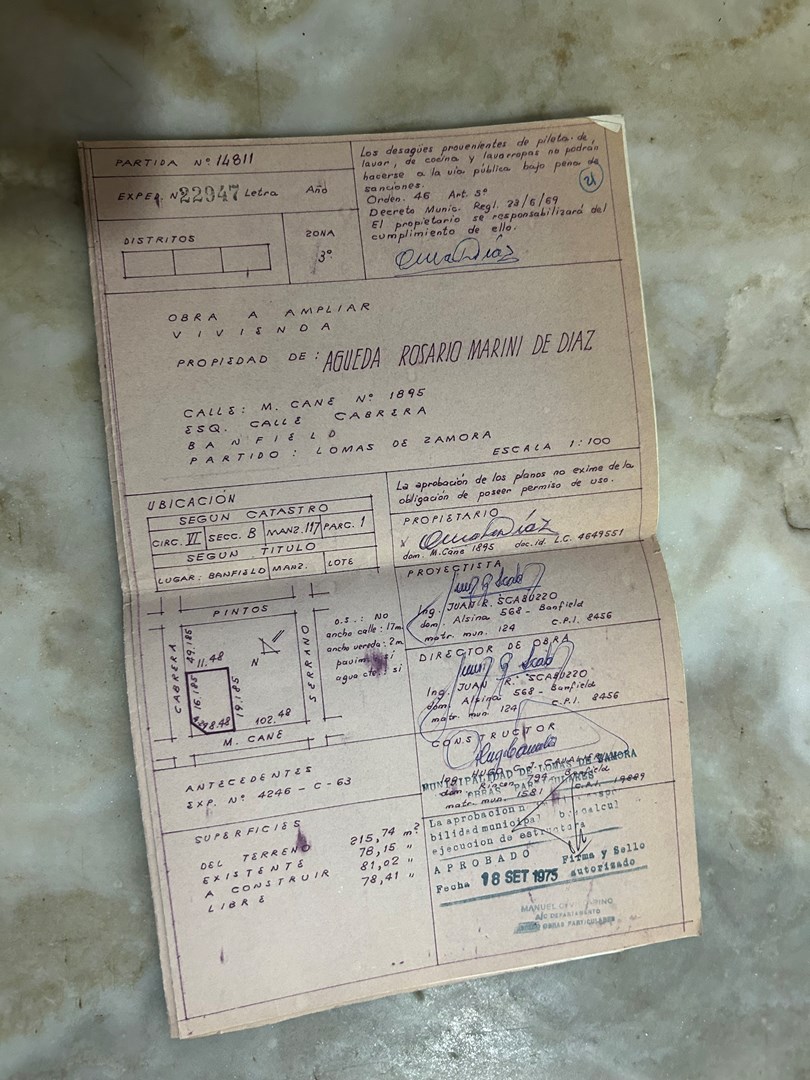 PARTIDA Nº 14811
EXPED. Nº 22947 Letra Año
DISTRITOS
ZONA
3º
Los desagües provenientes de piletas de
lavar, de cocina y lavarropas no podrán
hacerse a la vía pública bajo pena de
sanciones.
Orden. 46 Art. 5º
Decreto Munic. Regl. 23/6/69
El propietario se responsabilizará del
cumplimiento de ello.
21
OBRA A AMPLIAR
VIVIENDA
PROPIEDAD DE: AGUEDA ROSARIO MARINI DE DIAZ
CALLE: M. CANE Nº 1895
ESQ. CALLE CABRERA
BANFIELD
PARTIDO: LOMAS DE ZAMORA
ESCALA 1:100
UBICACIÓN
SEGUN CATASTRO
CIRC. VI SECC. B MANZ. 117 PARC. 1
SEGUN TITULO
LUGAR: BANFIELD MANZ. LOTE
PINTOS
CABRERA
SERRANO
M. CANE
49.185
11.48
16.185
19.185
8.48
102.48
N
o.s.: No
ancho calle: 17m
ancho vereda: 2m
pavim. si
agua cte: si
ANTECEDENTES
EXP. Nº 4246-C-63
SUPERFICIES
DEL TERRENO 215,74 m²
EXISTENTE 78,15 "
A CONSTRUIR 81,02 "
LIBRE 78,41 "
La aprobación de los planos no exime de la
obligación de poseer permiso de uso.
PROPIETARIO
x
dom. M. Cane 1895 doc. id. L.C. 4649551
PROYECTISTA
Ing. JUAN R. SCABUZZO
dom. Alsina 568 - Banfield
matr. mun. 124 C.P.I. 8456
DIRECTOR DE OBRA
Ing. JUAN R. SCABUZZO
dom. Alsina 568 - Banfield
matr. mun. 124 C.P.I. 8456
CONSTRUCTOR
HUGO
dom. Rincon 794 Banfield
matr. mun. 1581 C.P.I.
MUNICIPALIDAD DE LOMAS DE ZAMORA
OBRAS PARTICULARES
La aprobación
bilidad municipal
ejecucion de estructura
APROBADO
Firma y Sello
autorizado
Fecha 18 SET 1975
MANUEL
A/C DEPARTAMENTO
OBRAS PARTICULARES